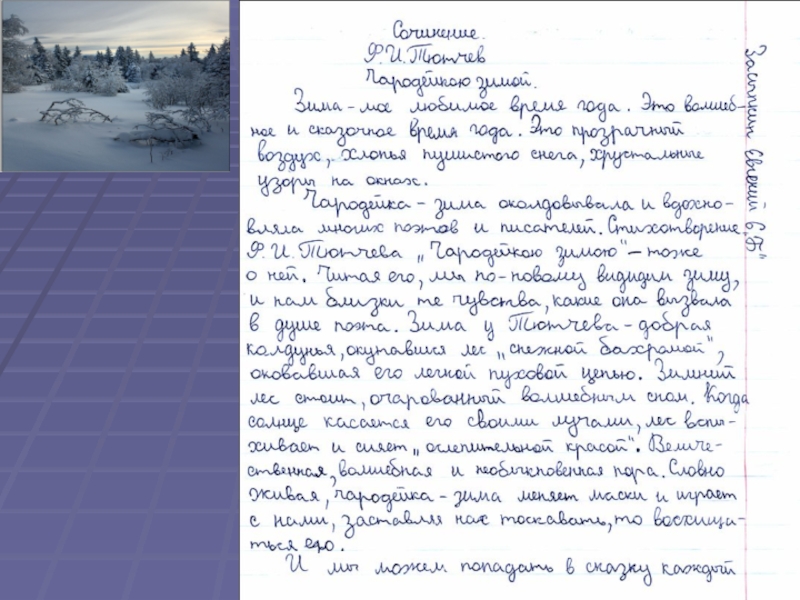 Сочинение.
Ф.И.Тютчев
Чародейкою зимой.
Зима - мое любимое время года. Это волшеб-
ное и сказочное время года. Это прозрачный
воздух, хлопья пушистого снега, хрустальные
узоры на окнах.
Чародейка - зима околдовывала и вдохно-
вляла многих поэтов и писателей. Стихотворение
Ф.И.Тютчева „Чародейкою зимою" - тоже
о ней. Читая его, мы по-новому видидим зиму,
и нам близки те чувства, какие она вызвала
в душе поэта. Зима у Тютчева - добрая
колдунья, окутавшись лес „снежной бахромой",
оковавшая его легкой пуховой цепью. Зимний
лес стоит, очарованный волшебным сном. Когда
солнце касается его своими лучами, лес вспы-
хивает и сияет „ослепительной красой". Величе-
ственная, волшебная и необыкновенная пора. Словно
живая, чародейка - зима меняет маски и играет
с нами, заставляя нас тосковать, то восхища-
ться ею.
И мы можем попадать в сказку каждый
Засыпкин Евгений 6„Б"